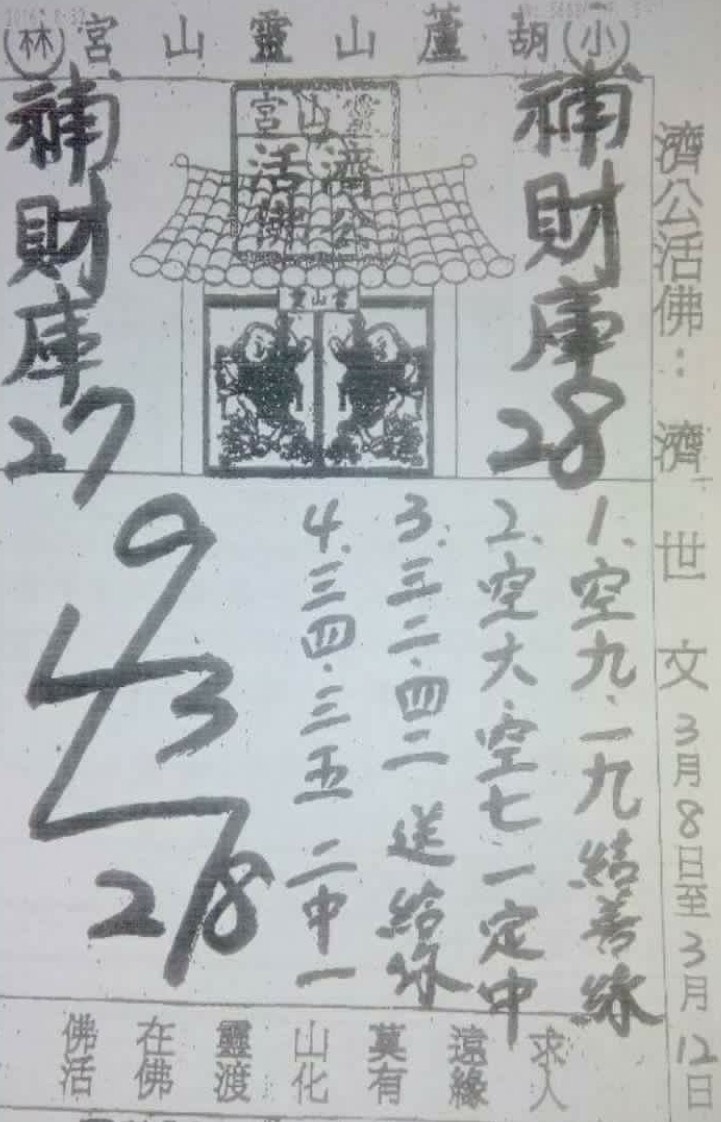 小胡蘆山靈山宮林
濟公活佛：濟世文 3月8日至3月12日
補財庫28
靈山宮
濟公活佛
靈山宮
補財庫27
1、空九、一九結善緣
2、空大、空七一定中
3、三二、四二送結你
4、三四、三五 二中一
9
43
28
佛在靈山莫遠求
活佛渡化有緣人